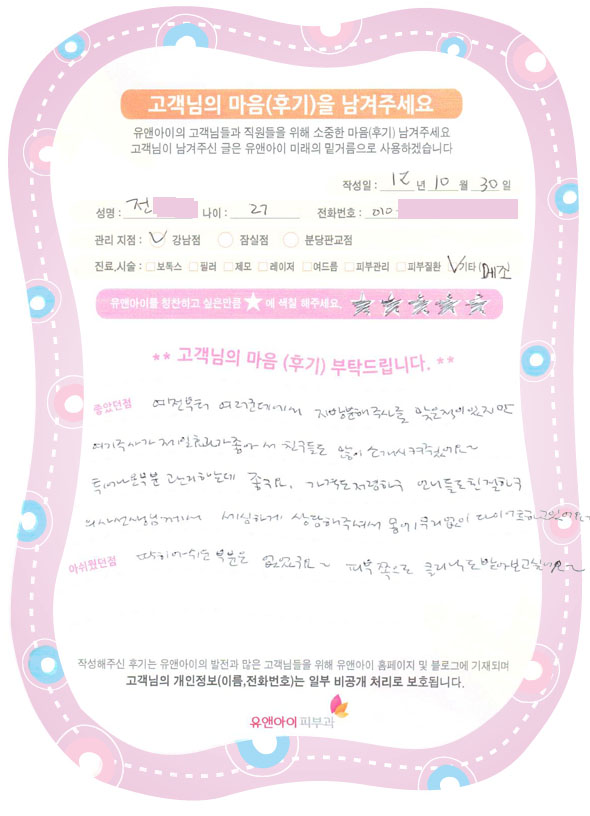 고객님의 마음(후기)을 남겨주세요
유앤아이의 고객님들과 직원들을 위해 소중한 마음(후기) 남겨주세요
고객님이 남겨주신 글은 유앤아이 미래의 밑거름으로 사용하겠습니다
작성일 : 12 년 10 월 30 일
성명 : 전 나이 : 27 전화번호 : 010-
관리 지점 : 강남점 잠실점 분당판교점
진료,시술 : 보톡스 필러 제모 레이저 여드름 피부관리 피부질환 기타 (메조)
유앤아이를 칭찬하고 싶은만큼 ★ 에 색칠 해주세요.
** 고객님의 마음 (후기) 부탁드립니다. **
좋았던점 예전부터 여러군데에서 지방분해주사를 맞은적이 있지만
여기주사가 제일효과가좋아서 친구들도 많이 소개시켜주었어요~
튀어나온부분 관리하는데 좋구요, 가격도저렴하구 언니들도친절하구
의사선생님께서 세심하게 상담해주셔서 몸에무리없이 다이어트하고있어요~
아쉬웠던점 딱히아쉬운 부분은 없었구요~ 피부쪽으로 클리닉도받아보고싶어요~
작성해주신 후기는 유앤아이의 발전과 많은 고객님들을 위해 유앤아이 홈페이지 및 블로그에 기재되며
고객님의 개인정보(이름,전화번호)는 일부 비공개 처리로 보호됩니다.
유앤아이 피부과